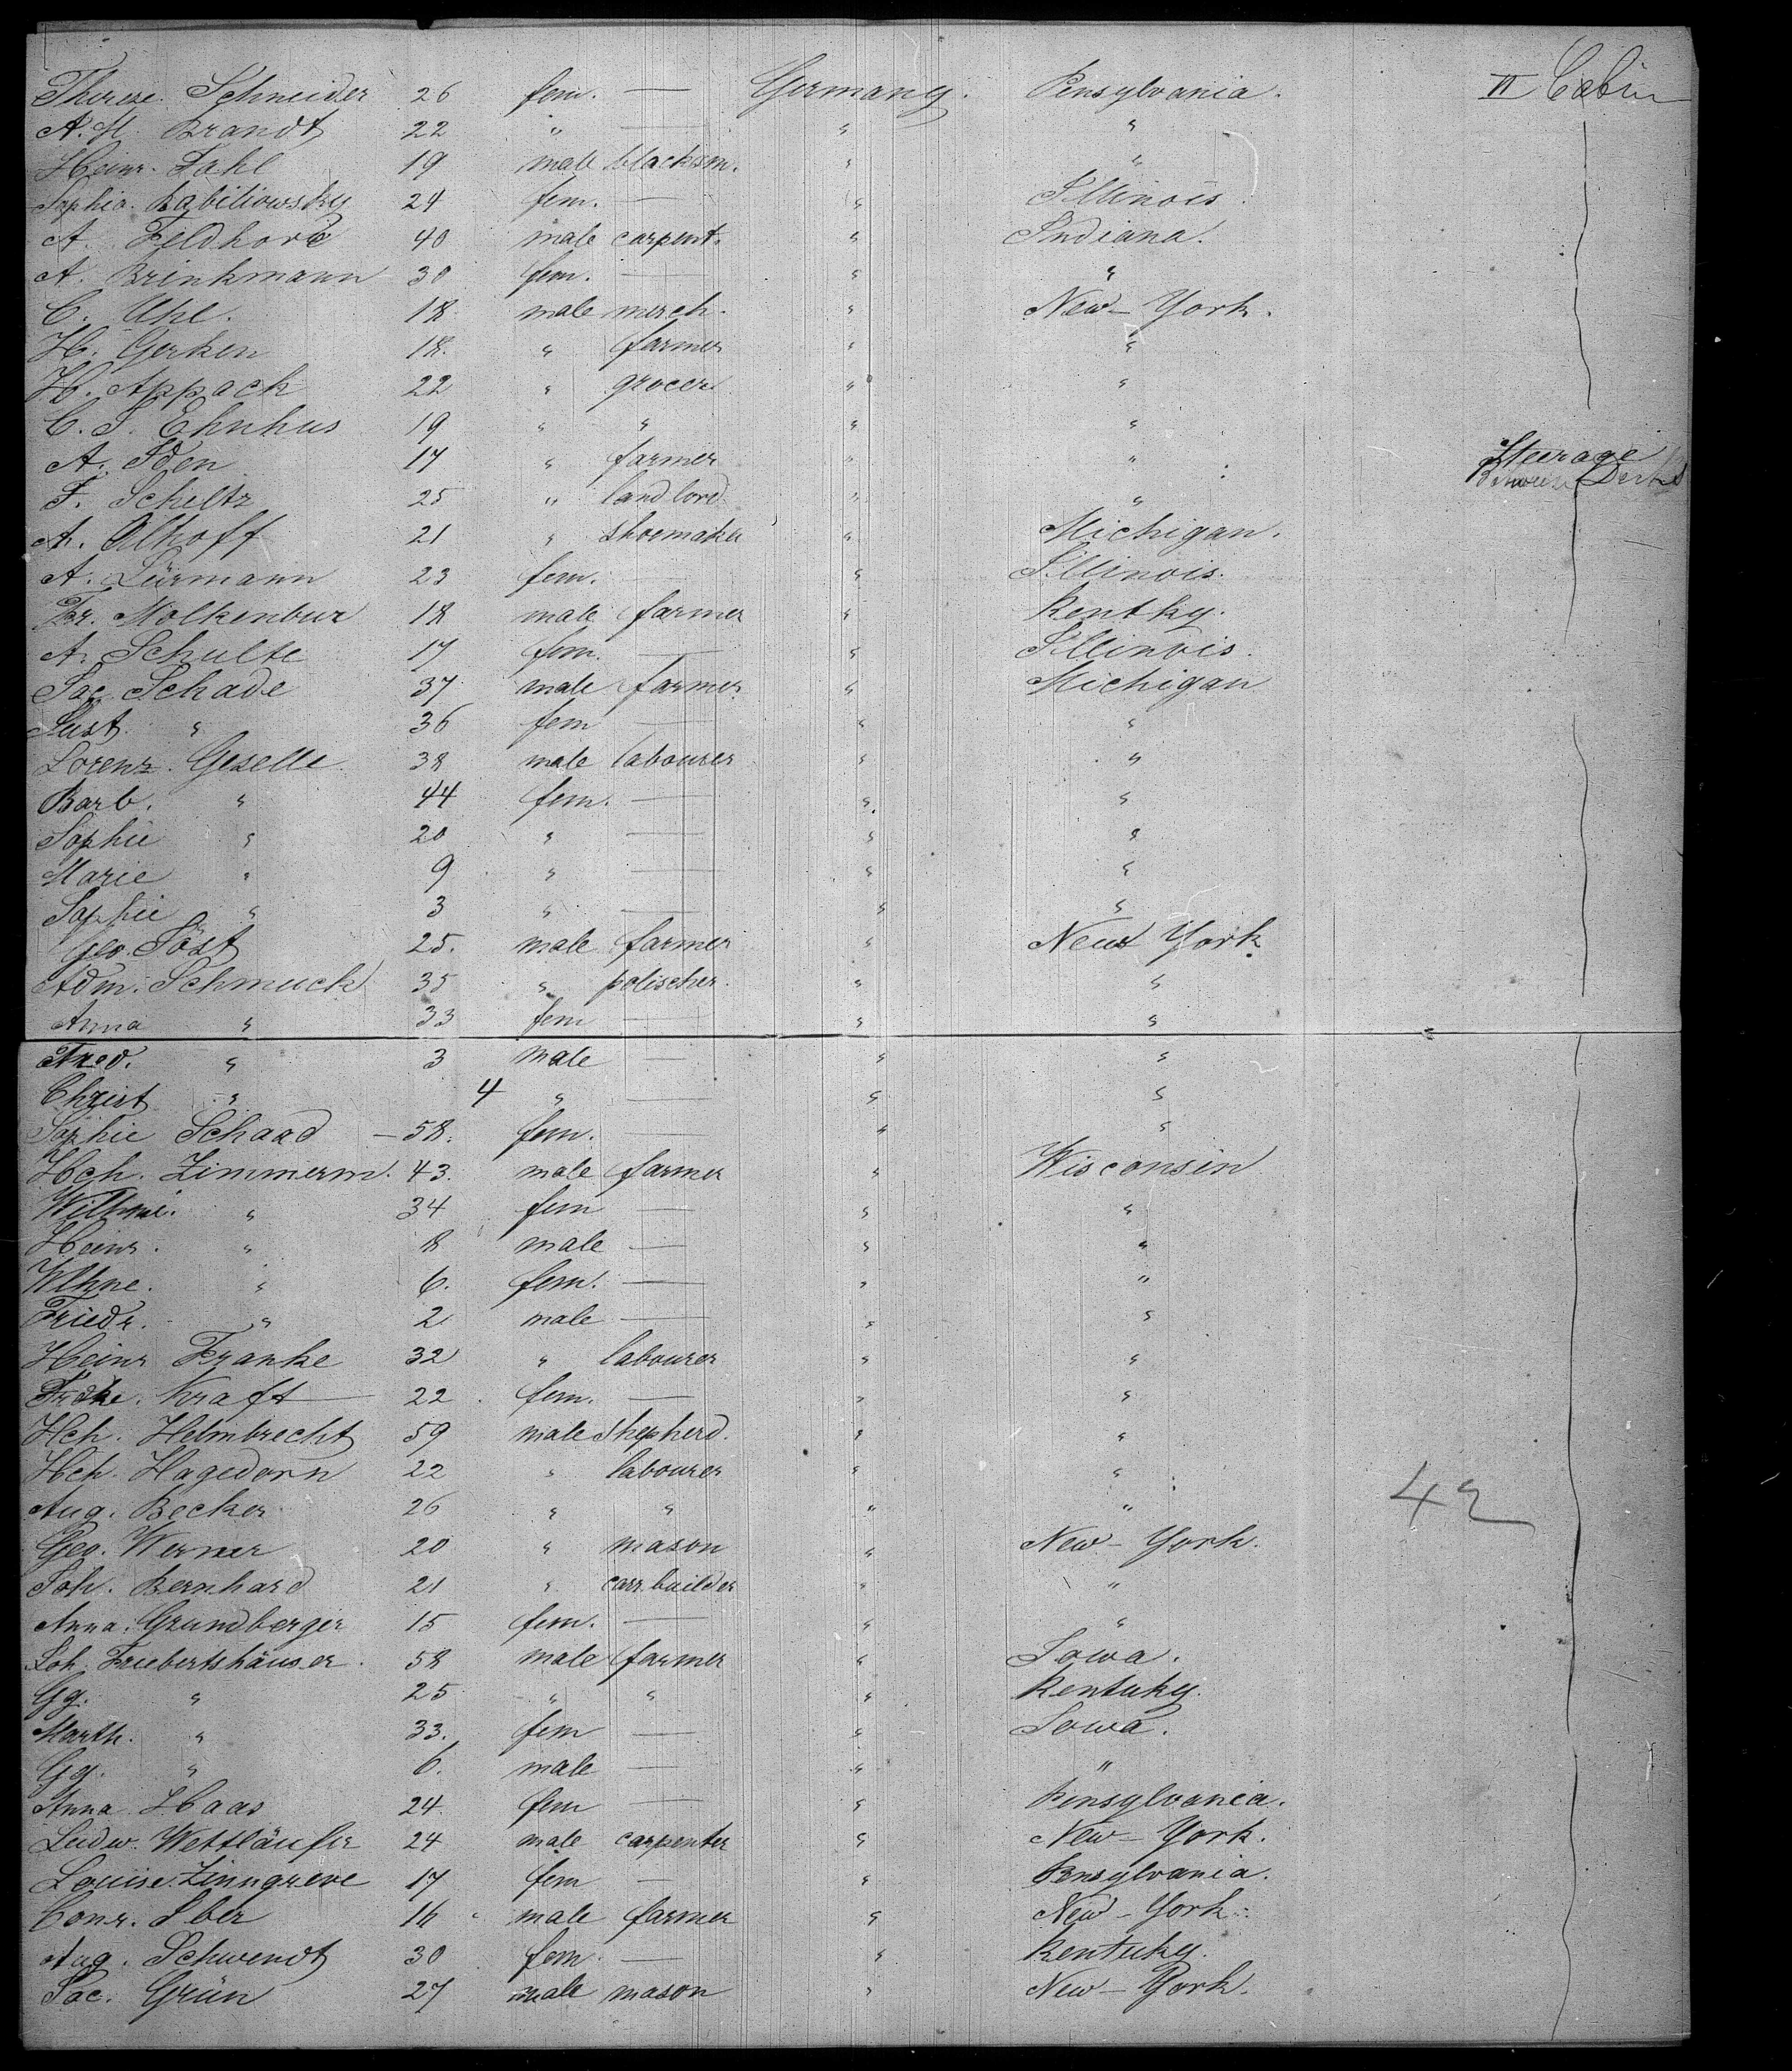 Therese Schneider 26 fem. — Germany. Pensylvania. II Cabin
A. M. Brandt 22 " — " "
Heinr. Fahl 19 male blacksm. " "
Sophia. Rabiliowsky 24 fem. — " Illinois.
A. 40 male carpent. " Indiana.
A. Brinkmann 30 fem. — " "
C. Uhl. 18 male merch. " New-York.
H. Gerken 18. " farmer " "
H. Appach 22 " grocer " "
C. F. Ehnhus 19 " " " "
A. Iden 17 " farmer " " Steerage
F. Scheltz 25 " landlord " " Decks
A. Olhoff 21 " shoemaker " Michigan.
A. Lürmann 23 fem. — " Illinois.
Fr. Molkenbur 18 male farmer " Kentky.
A. Schulte 17 fem. — " Illinois.
Jac. Schade 37 male farmer " Michigan
Just. " 36 fem — " "
Lorenz. Geselle 38 male labourer " "
Barb. " 44 fem. — " "
Sophie " 20 " — " "
Marie " 9 " — " "
Sophie " 3 " — " "
Geo. Töst 25. male farmer " New York
Adm. Schmuck 35 " polischer. " "
Anna " 33 fem — " "
" 3 male — " "
Christ " 4 " — " "
Sophie Schaad — 58. fem. — " "
Hch. Zimmerm. 43. male farmer " Wisconsin
Wilhmi. " 34 fem — " "
Heinr. " 8 male — " "
Wlhne. " 6. fem. — " "
Friedr. " 2 male — " "
Heinr Franke 32 " labourer " "
Kraft 22 fem. — " "
Hch. Helmbrecht 59 male shepherd. " "
Hch. Hagedorn 22 " labourer " "
Aug. Becker 26 " " " " 42
Geo. Werner 20 " mason " New-York.
Joh. Bernhard 21 " carr. builder " "
Anna. Grundberger 15 fem. — " "
Joh. Friebertshäuser. 58 male farmer " Iowa.
Gg. " 25 " " " Kentuky.
Marth. " 33. fem — " Iowa.
Gg. " 6. male — " "
Anna Haas 24. fem — " Pensylvania.
Ludw. Wettläufer 24 male carpenter " New-York.
Louise. Zinngreve 17 fem — " Pensylvania.
Conr. Iber 16 male farmer " New-York.
Aug. Schwendt 30 fem. — " Kentuky.
Jac. Grün 27 male mason " New-York.